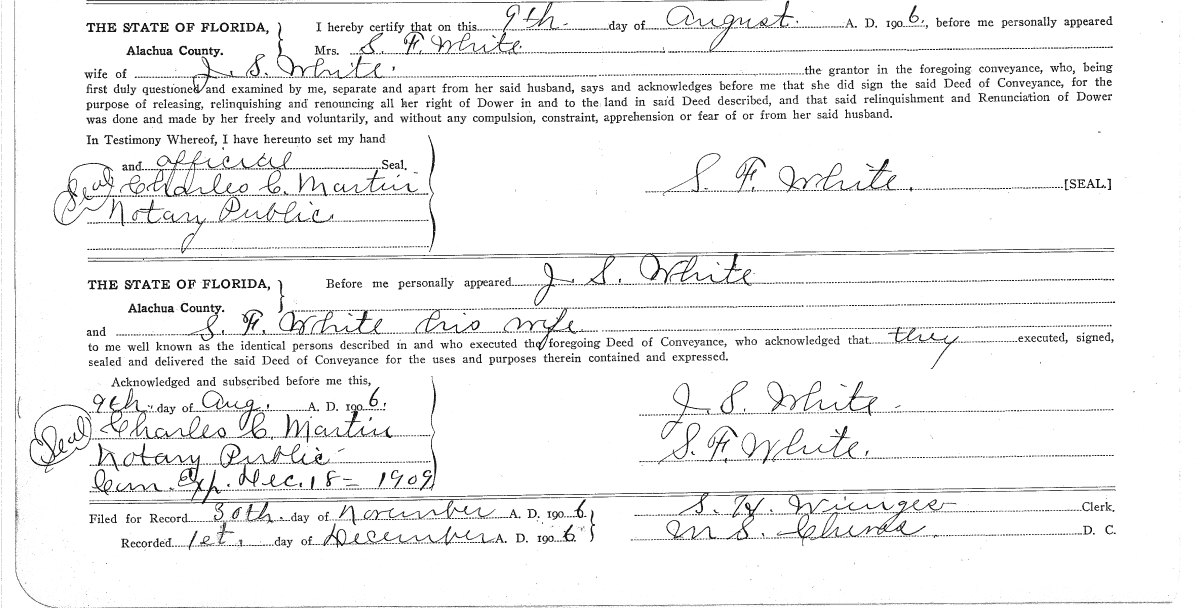 THE STATE OF FLORIDA, } I hereby certify that on this 9th day of August A. D. 1906, before me personally appeared
Alachua County. Mrs. S. F. White
wife of J. S. White. the grantor in the foregoing conveyance, who, being
first duly questioned and examined by me, separate and apart from her said husband, says and acknowledges before me that she did sign the said Deed of Conveyance, for the
purpose of releasing, relinquishing and renouncing all her right of Dower in and to the land in said Deed described, and that said relinquishment and Renunciation of Dower
was done and made by her freely and voluntarily, and without any compulsion, constraint, apprehension or fear of or from her said husband.
In Testimony Whereof, I have hereunto set my hand
and official Seal.
Seal Charles C. Martin S. F. White. [SEAL.]
Notary Public
THE STATE OF FLORIDA, } Before me personally appeared J. S. White
Alachua County.
and S. F. White his wife
to me well known as the identical persons described in and who executed the foregoing Deed of Conveyance, who acknowledged that they executed, signed,
sealed and delivered the said Deed of Conveyance for the uses and purposes therein contained and expressed.
Acknowledged and subscribed before me this,
9th day of Aug. A. D. 1906. J. S. White
Seal Charles C. Martin
Notary Public S. F. White.
Com. Exp. Dec. 18 - 1909
Filed for Record 30th day of November A. D. 1906 } S. H. Clerk.
Recorded 1st, day of December A. D. 1906 M S. D. C.